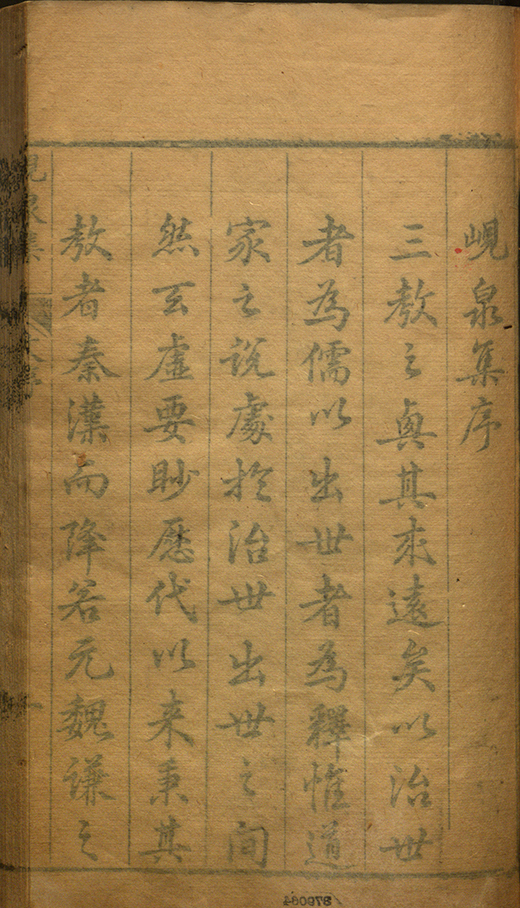 峴泉集序
三教之興其来遠矣以治世
者為儒以出世者為釋惟道
家之說處於治世出世之間
然玄虛要眇歷代以来秉其
教者秦漢而降若元魏謙之
峴泉集